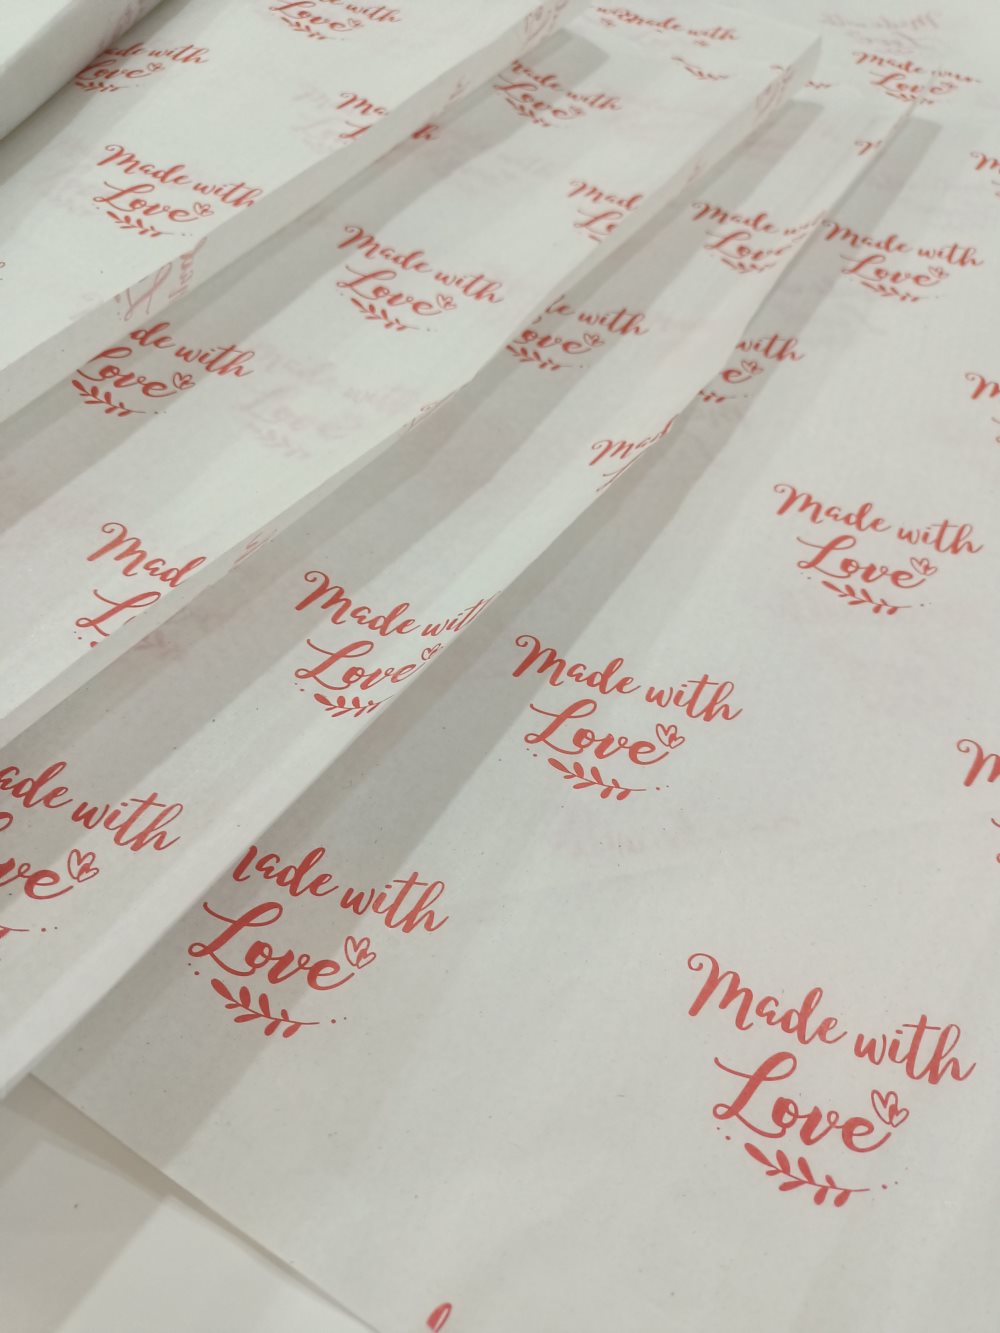 Made with
Love
Made with
Love
Made with
Made with
Love
Made with
Love
Made with
Love
Made with
Love
Made with
Love
Made with
Love
with
Made with
Love
with
Love
Made with
Love
Made with
Love
Made with
Love
with
Love
Made with
Love